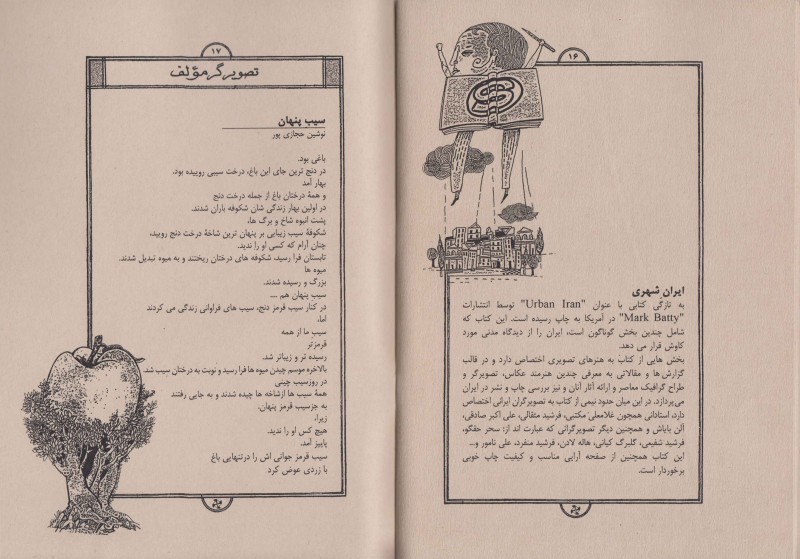 ۱۶
ایران شهری
به تازگی کتابی با عنوان "Urban Iran" توسط انتشارات
"Mark Batty" در آمریکا به چاپ رسیده است. این کتاب که
شامل چندین بخش گوناگون است، ایران را از دیدگاه مدنی مورد
کاوش قرار می دهد.
بخش هایی از کتاب به هنرهای تصویری اختصاص دارد و در قالب
گزارش ها و مقالاتی به معرفی چندین هنرمند عکاس، تصویرگر و
طراح گرافیک معاصر و ارائه آثار آنان و نیز بررسی چاپ و نشر در ایران
می‌پردازد. در این میان حدود نیمی از کتاب به تصویرگران ایرانی اختصاص
دارد، استادانی همچون غلامعلی مکتبی، فرشید مثقالی، علی اکبر صادقی،
آلن بایاش و همچنین دیگر تصویرگرانی که عبارت اند از: سحر حقگو،
فرشید شفیعی، گلبرگ کیانی، هاله لادن، فرشید منفرد، علی نامور و...
این کتاب همچنین از صفحه آرایی مناسب و کیفیت چاپ خوبی
برخوردار است.
۱۷
تصویرگر مؤلف
سیب پنهان
نوشین حجازی پور
باغی بود.
در دنج ترین جای این باغ، درخت سیبی روییده بود.
بهار آمد
و همۀ درختان باغ از جمله درخت دنج
در اولین بهار زندگی شان شکوفه باران شدند.
پشت انبوه شاخ و برگ ها،
شکوفۀ سیب زیبایی بر پنهان ترین شاخۀ درخت دنج رویید،
چنان آرام که کسی او را ندید.
تابستان فرا رسید، شکوفه های درختان ریختند و به میوه تبدیل شدند.
میوه ها
بزرگ و رسیده شدند.
سیب پنهان هم ....
در کنار سیب قرمز دنج، سیب های فراوانی زندگی می کردند
اما،
سیب ما از همه
قرمزتر
رسیده تر و زیباتر شد.
بالاخره موسم چیدن میوه ها فرا رسید و نوبت به درختان سیب شد.
در روزسیب چینی
همۀ سیب ها ازشاخه ها چیده شدند و به جایی رفتند
به جزسیب قرمز پنهان.
زیرا،
هیچ کس او را ندید.
پاییز آمد.
سیب قرمز جوانی اش را درتنهایی باغ
با زردی عوض کرد